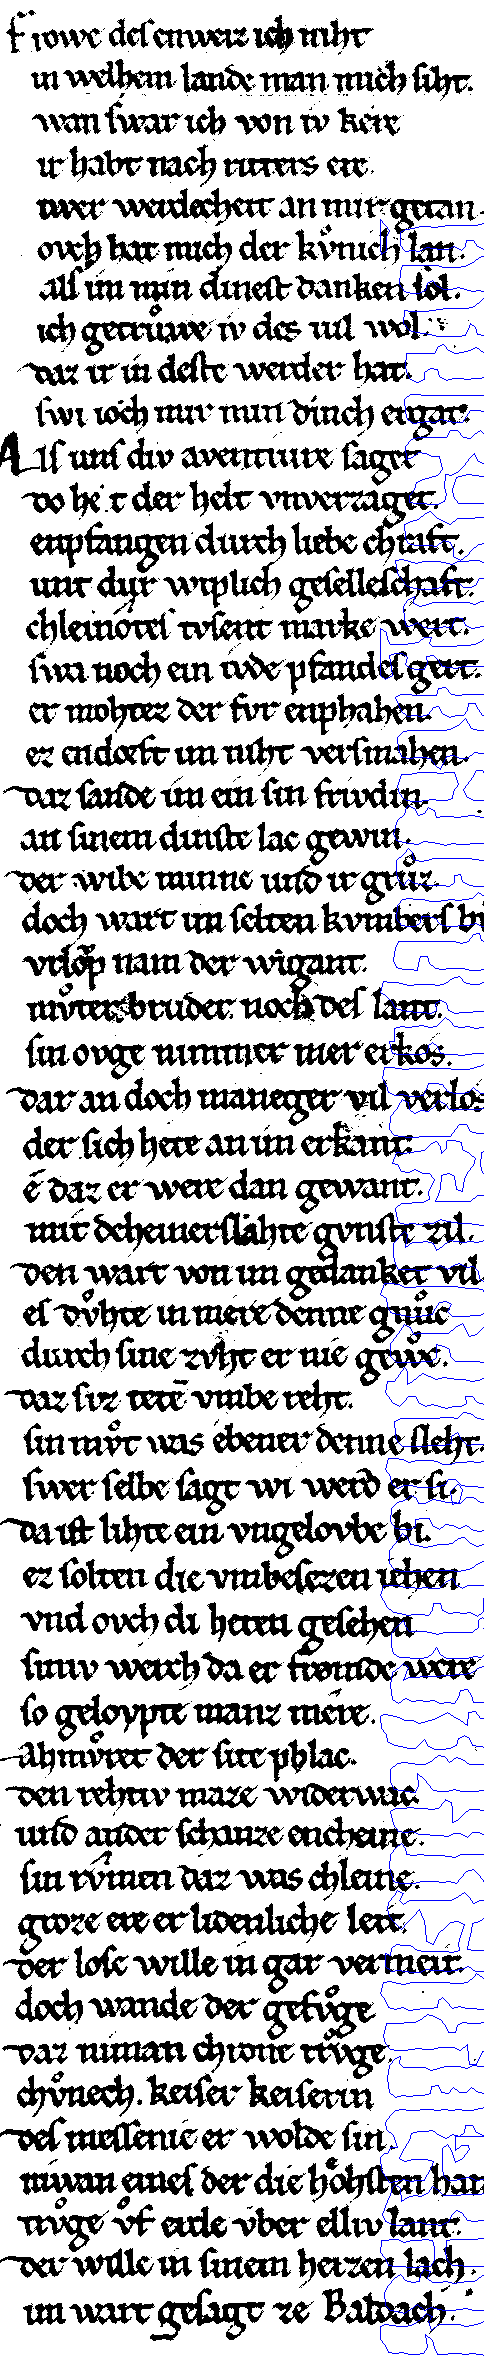 Frowe des enweiz ich niht
in welhem lande man mich siht.
wan swar ich von iv kere
ir habt nach ritters ere.
iwer werdecheit an mir getan
ovch hat mich der kv́nich lan.
als im min dinest danken sol.
ich getrůwe iv des vil wol.
daz ir in deste werder hat.
swi ioch mir min dinch ergat.
Als uns div aventiure saget
do het der helt vnverzaget.
enpfangen durch liebe chraft.
unt durh wiplich geselleschaft.
chleinótes tvsent marke wert.
swa noch ein ivde pfandes gert.
er mohtez der fvr enphahen.
ez endorft im niht versmahen.
daz sande im ein sin frivdin.
an sinem dinste lac gewin.
der wibe minne und ir grůz.
doch wart im selten kvmbers bů
vrlǒp nam der wigant.
můter bruder noch des lant.
sin ovge nimmer mer erkos.
dar an doch maneger vil verlos
der sich hete an im erkant.
ē daz er were dan gewant.
mit deheiner slahte gvnste zil.
den wart von im gedanket vil
es dv̊hte in mere denne gnůc
durch sine zvht er nie gewůc.
daz siz tetē vmbe reht.
sin mv̊t was ebener denne sleht.
swer selbe sagt wi werd er si.
da ist lihte ein vngelovbe bi.
ez solten die vmbesezen iehen
vnd ovch di heten gesehen
siniv werch da er fromde were
so geloypte manz mere.
Gahmv̊ret der site phlac.
den rehtiv maze widerwac.
und ander schanze encheine.
sin rv̊men daz was chleine.
groze ere er lidenliche leit.
der lose wille in gar vermeit.
doch wande der gefv̊ge
daz niman chrone trv̊ge
chv̊nech. keiser keiserin
des messenie er wolde sin.
niwan eines der die hohsten hant
trv̊ge v̊f erde vber elliv lant.
der wille in sinem herzen lach.
im wart gesagt ze Baldach.